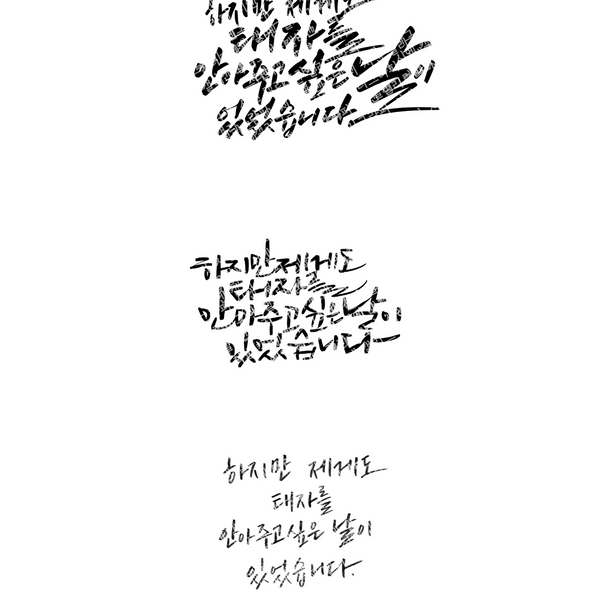 하지만 제게도
태자를
안아주고 싶은 날이
있었습니다.
하지만 제게도
태자를
안아주고 싶은 날이
있었습니다
하지만 제게도
태자를
안아주고 싶은 날이
있었습니다.